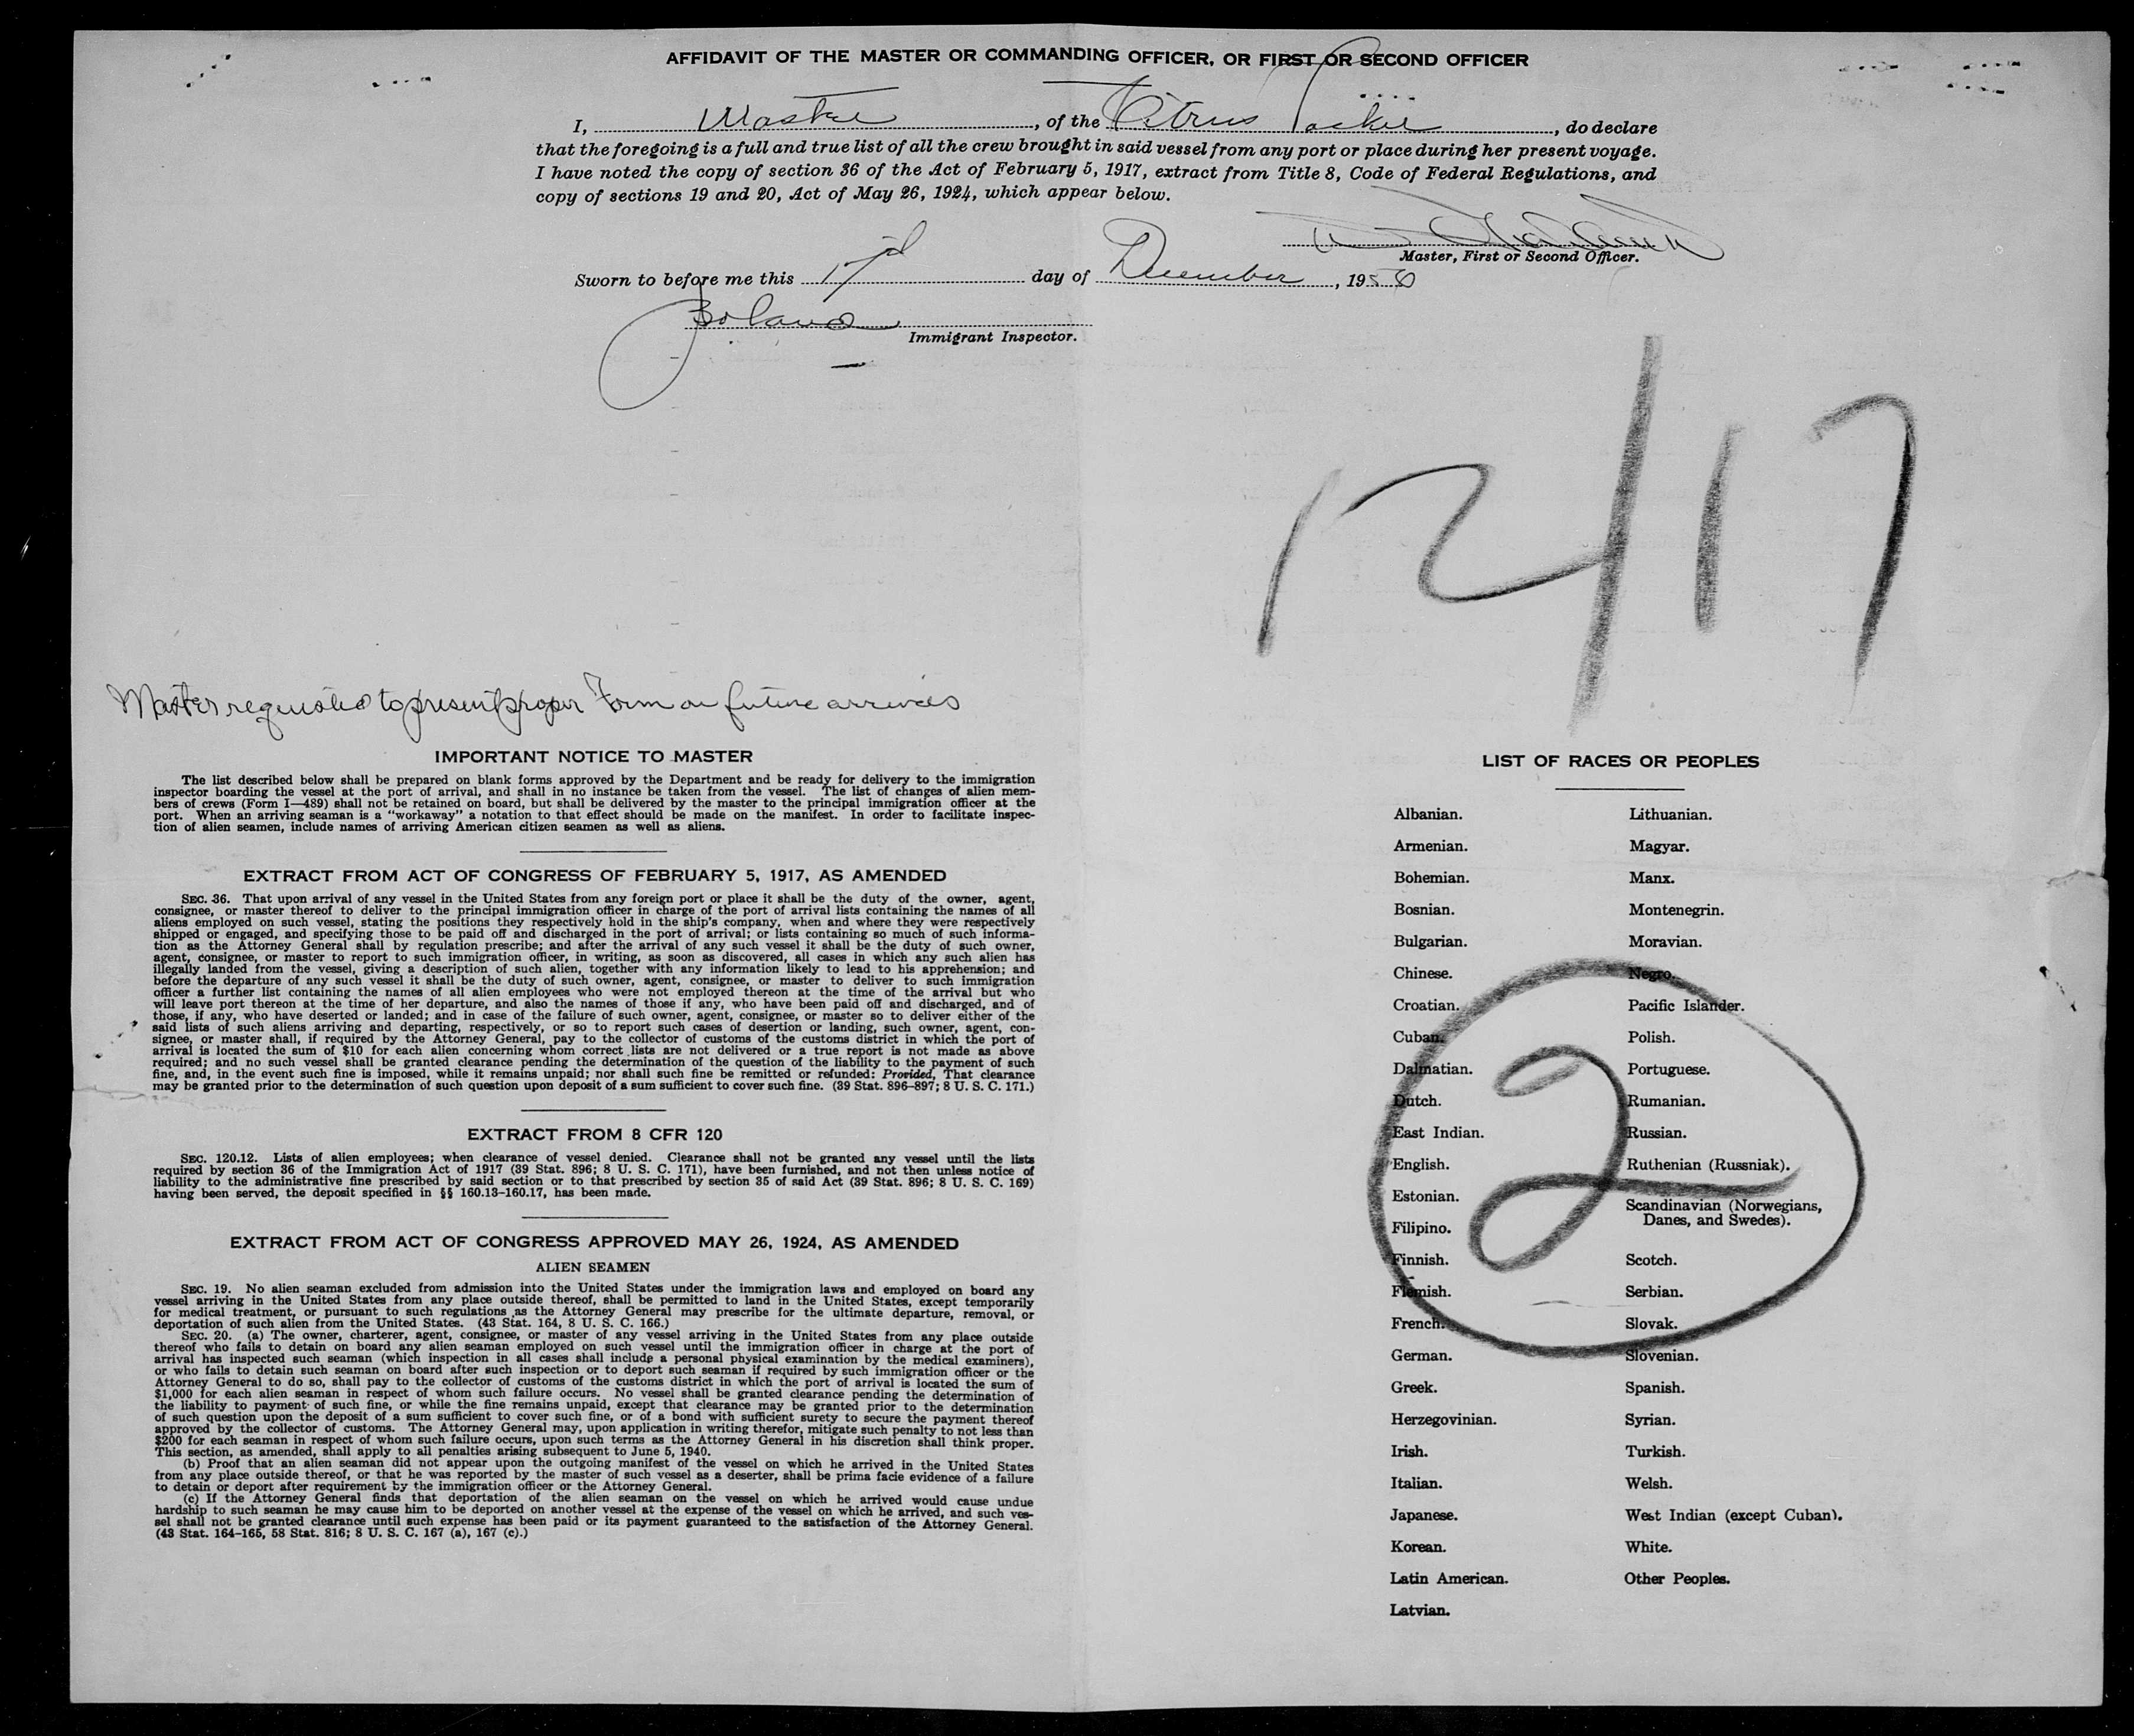 AFFIDAVIT OF THE MASTER OR COMMANDING OFFICER, OR FIRST OR SECOND OFFICER
I, Master, of the Citrus Packer, do declare
that the foregoing is a full and true list of all the crew brought in said vessel from any port or place during her present voyage.
I have noted the copy of section 36 of the Act of February 5, 1917, extract from Title 8, Code of Federal Regulations, and
copy of sections 19 and 20, Act of May 26, 1924, which appear below.
Master, First or Second Officer.
Sworn to before me this 17 day of December, 1950
Boland
Immigrant Inspector.
12/17
Master requested to present proper Form on future arrivals
IMPORTANT NOTICE TO MASTER
The list described below shall be prepared on blank forms approved by the Department and be ready for delivery to the immigration
inspector boarding the vessel at the port of arrival, and shall in no instance be taken from the vessel. The list of changes of alien mem-
bers of crews (Form I—489) shall not be retained on board, but shall be delivered by the master to the principal immigration officer at the
port. When an arriving seaman is a "workaway" a notation to that effect should be made on the manifest. In order to facilitate inspec-
tion of alien seamen, include names of arriving American citizen seamen as well as aliens.
EXTRACT FROM ACT OF CONGRESS OF FEBRUARY 5, 1917, AS AMENDED
SEC. 36. That upon arrival of any vessel in the United States from any foreign port or place it shall be the duty of the owner, agent,
consignee, or master thereof to deliver to the principal immigration officer in charge of the port of arrival lists containing the names of all
aliens employed on such vessel, stating the positions they respectively hold in the ship's company, when and where they were respectively
shipped or engaged, and specifying those to be paid off and discharged in the port of arrival; or lists containing so much of such informa-
tion as the Attorney General shall by regulation prescribe; and after the arrival of any such vessel it shall be the duty of such owner,
agent, consignee, or master to report to such immigration officer, in writing, as soon as discovered, all cases in which any such alien has
illegally landed from the vessel, giving a description of such alien, together with any information likely to lead to his apprehension; and
before the departure of any such vessel it shall be the duty of such owner, agent, consignee, or master to deliver to such immigration
officer a further list containing the names of all alien employees who were not employed thereon at the time of the arrival but who
will leave port thereon at the time of her departure, and also the names of those if any, who have been paid off and discharged, and of
those, if any, who have deserted or landed; and in case of the failure of such owner, agent, consignee, or master so to deliver either of the
said lists of such aliens arriving and departing, respectively, or so to report such cases of desertion or landing, such owner, agent, con-
signee, or master shall, if required by the Attorney General, pay to the collector of customs of the customs district in which the port of
arrival is located the sum of $10 for each alien concerning whom correct lists are not delivered or a true report is not made as above
required; and no such vessel shall be granted clearance pending the determination of the question of the liability to the payment of such
fine, and, in the event such fine is imposed, while it remains unpaid; nor shall such fine be remitted or refunded: Provided, That clearance
may be granted prior to the determination of such question upon deposit of a sum sufficient to cover such fine. (39 Stat. 896-897; 8 U. S. C. 171.)
EXTRACT FROM 8 CFR 120
SEC. 120.12. Lists of alien employees; when clearance of vessel denied. Clearance shall not be granted any vessel until the lists
required by section 36 of the Immigration Act of 1917 (39 Stat. 896; 8 U. S. C. 171), have been furnished, and not then unless notice of
liability to the administrative fine prescribed by said section or to that prescribed by section 35 of said Act (39 Stat. 896; 8 U. S. C. 169)
having been served, the deposit specified in §§ 160.13-160.17, has been made.
EXTRACT FROM ACT OF CONGRESS APPROVED MAY 26, 1924, AS AMENDED
ALIEN SEAMEN
SEC. 19. No alien seaman excluded from admission into the United States under the immigration laws and employed on board any
vessel arriving in the United States from any place outside thereof, shall be permitted to land in the United States, except temporarily
for medical treatment, or pursuant to such regulations as the Attorney General may prescribe for the ultimate departure, removal, or
deportation of such alien from the United States. (43 Stat. 164, 8 U. S. C. 166.)
SEC. 20. (a) The owner, charterer, agent, consignee, or master of any vessel arriving in the United States from any place outside
thereof who fails to detain on board any alien seaman employed on such vessel until the immigration officer in charge at the port of
arrival has inspected such seaman (which inspection in all cases shall include a personal physical examination by the medical examiners),
or who fails to detain such seaman on board after such inspection or to deport such seaman if required by such immigration officer or the
Attorney General to do so, shall pay to the collector of customs of the customs district in which the port of arrival is located the sum of
$1,000 for each alien seaman in respect of whom such failure occurs. No vessel shall be granted clearance pending the determination of
the liability to payment of such fine, or while the fine remains unpaid, except that clearance may be granted prior to the determination
of such question upon the deposit of a sum sufficient to cover such fine, or of a bond with sufficient surety to secure the payment thereof
approved by the collector of customs. The Attorney General may, upon application in writing therefor, mitigate such penalty to not less than
$200 for each seaman in respect of whom such failure occurs, upon such terms as the Attorney General in his discretion shall think proper.
This section, as amended, shall apply to all penalties arising subsequent to June 5, 1940.
(b) Proof that an alien seaman did not appear upon the outgoing manifest of the vessel on which he arrived in the United States
from any place outside thereof, or that he was reported by the master of such vessel as a deserter, shall be prima facie evidence of a failure
to detain or deport after requirement by the immigration officer or the Attorney General.
(c) If the Attorney General finds that deportation of the alien seaman on the vessel on which he arrived would cause undue
hardship to such seaman he may cause him to be deported on another vessel at the expense of the vessel on which he arrived, and such ves-
sel shall not be granted clearance until such expense has been paid or its payment guaranteed to the satisfaction of the Attorney General.
(43 Stat. 164-165, 58 Stat. 816; 8 U. S. C. 167 (a), 167 (c).)
LIST OF RACES OR PEOPLES
Albanian.
Armenian.
Bohemian.
Bosnian.
Bulgarian.
Chinese.
Croatian.
Cuban.
Dalmatian.
Dutch.
East Indian.
English.
Estonian.
Filipino.
Finnish.
Flemish.
French.
German.
Greek.
Herzegovinian.
Irish.
Italian.
Japanese.
Korean.
Latin American.
Latvian.
Lithuanian.
Magyar.
Manx.
Montenegrin.
Moravian.
Negro.
Pacific Islander.
Polish.
Portuguese.
Rumanian.
Russian.
Ruthenian (Russniak).
Scandinavian (Norwegians,
Danes, and Swedes).
Scotch.
Serbian.
Slovak.
Slovenian.
Spanish.
Syrian.
Turkish.
Welsh.
West Indian (except Cuban).
White.
Other Peoples.
2